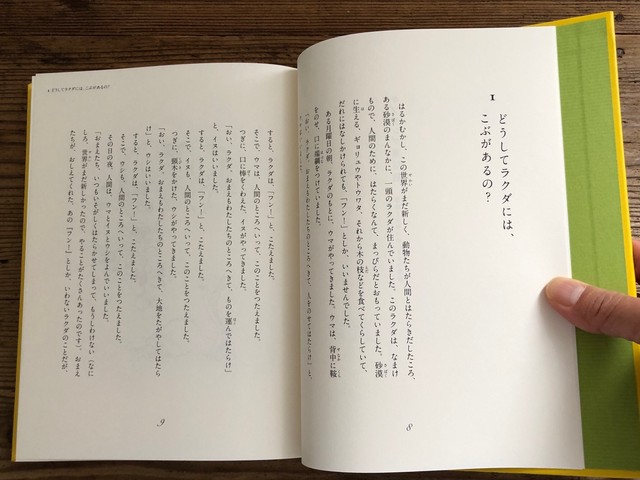 1
どうしてラクダには、
こぶがあるの？
はるかむかし、この世界がまだ新しく、動物たちが人間とはたらきだしたころ、
ある砂漠のまんなかに、一頭のラクダが住んでいました。このラクダは、なまけ
もので、人間のために、はたらくなんて、まっぴらだとおもっていました。砂漠
に生える、ギョリュウやトウワタ、それから木の枝などを食べてくらしていて、
だれにはなしかけられても、「フンー」としか、いいませんでした。
ある月曜日の朝、ラクダのもとに、ウマがやってきました。ウマは、背中に鞍
をのせ、口に馬銜をつけていました。
「おい、ラクダ、おまえもわたしたちのところへきて、人をのせてはたらけ」と、
8
9
1 どうしてラクダには、こぶがあるの?
すると、ラクダは、「フンー」と、こたえました。
そこで、ウマは、人間のところへいって、このことをつたえました。
つぎに、口に棒をくわえた、イヌがやってきました。
「おい、ラクダ、おまえもわたしたちのところへきて、ものを運んではたらけ」
と、イヌはいいました。
すると、ラクダは、「フンー」と、こたえました。
そこで、イヌも、人間のところへいって、このことをつたえました。
つぎに、頸木をかけた、ウシがやってきました。
「おい、ラクダ、おまえもわたしたちのところへきて、大地をたがやしてはたら
け」と、ウシはいいました。
すると、ラクダは、「フンー」と、こたえました。
そこで、ウシも、人間のところへいって、このことをつたえました。
その日の夜、人間は、ウマとイヌとウシをよんでいいました。
「おまえたち、いつもいそがしくはたらかせてしまって、もうしわけない(なに
しろ、世界がまだ新しかったので、やることがたくさんあったのです)。おまえ
たちが、おしえてくれた、あの「フンー」としか、いわないラクダのことだが、